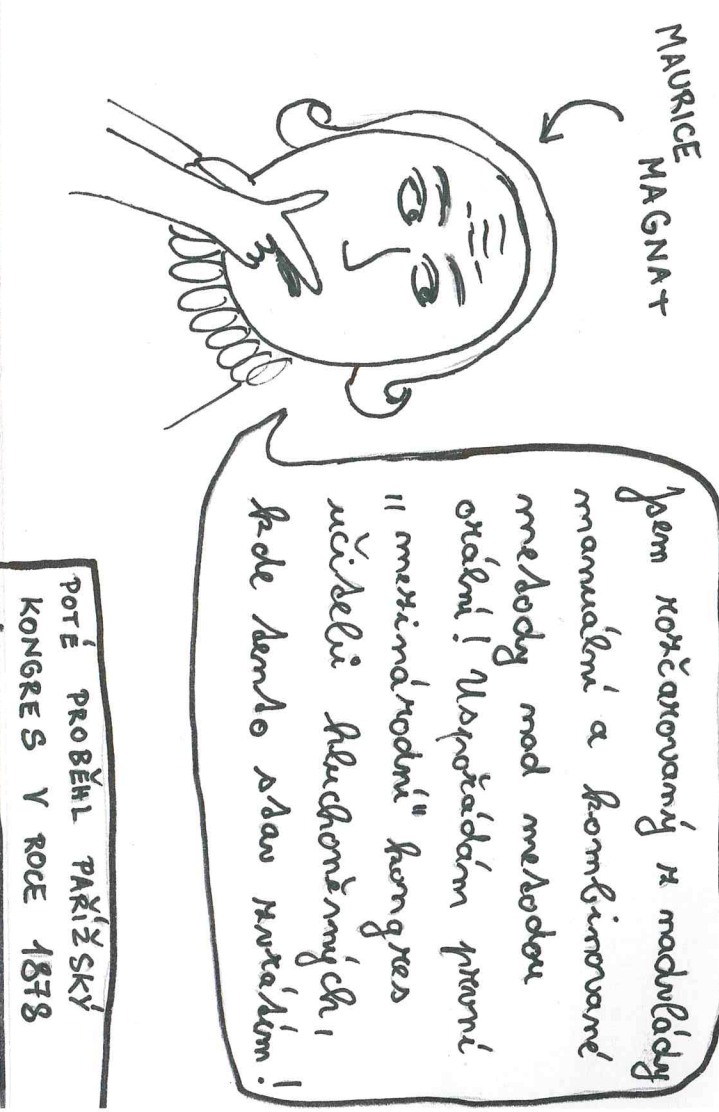 MAURICE
MAGNAT
Jsem rozčarovaný z nadvlády
manuální a kombinované
metody nad metodou
orální! Uspořádám první
"mezinárodní" kongres
učitelů hluchoněmých,
kde tento stav zvrátím!
POTÉ PROBĚHL PAŘÍŽSKÝ
KONGRES V ROCE 1878